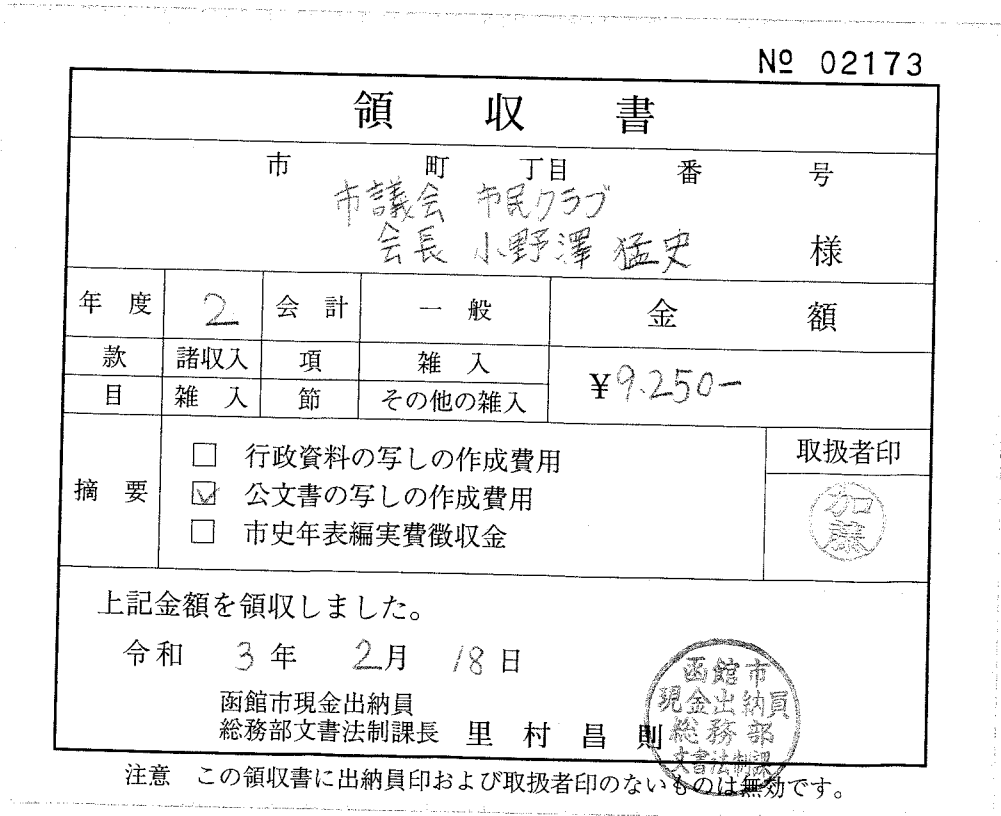 № 02173
領 収 書
市 町 丁目 番 号
市議会 市民クラブ
会長 小野澤 猛史 様
年 度 2 会 計 一 般 金 額
款 諸収入 項 雑 入 ¥9.250-
目 雑 入 節 その他の雑入
摘 要
□ 行政資料の写しの作成費用
☑ 公文書の写しの作成費用
□ 市史年表編実費徴収金
取扱者印
加藤
上記金額を領収しました。
令和 3年 2月 18日
函館市現金出納員
総務部文書法制課長 里 村 昌 則
函館市
現金出納員
総務部
文書法制課
注意 この領収書に出納員印および取扱者印のないものは無効です。